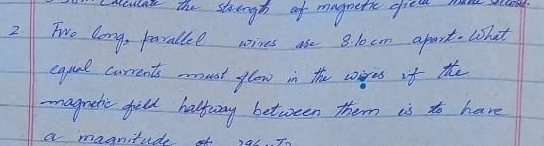 Calculate the strength of magnetic field
2. Two long, parallel wires are 8.10cm apart. What
equal currents must flow in the wires if the
magnetic field halfway between them is to have
a magnitude of